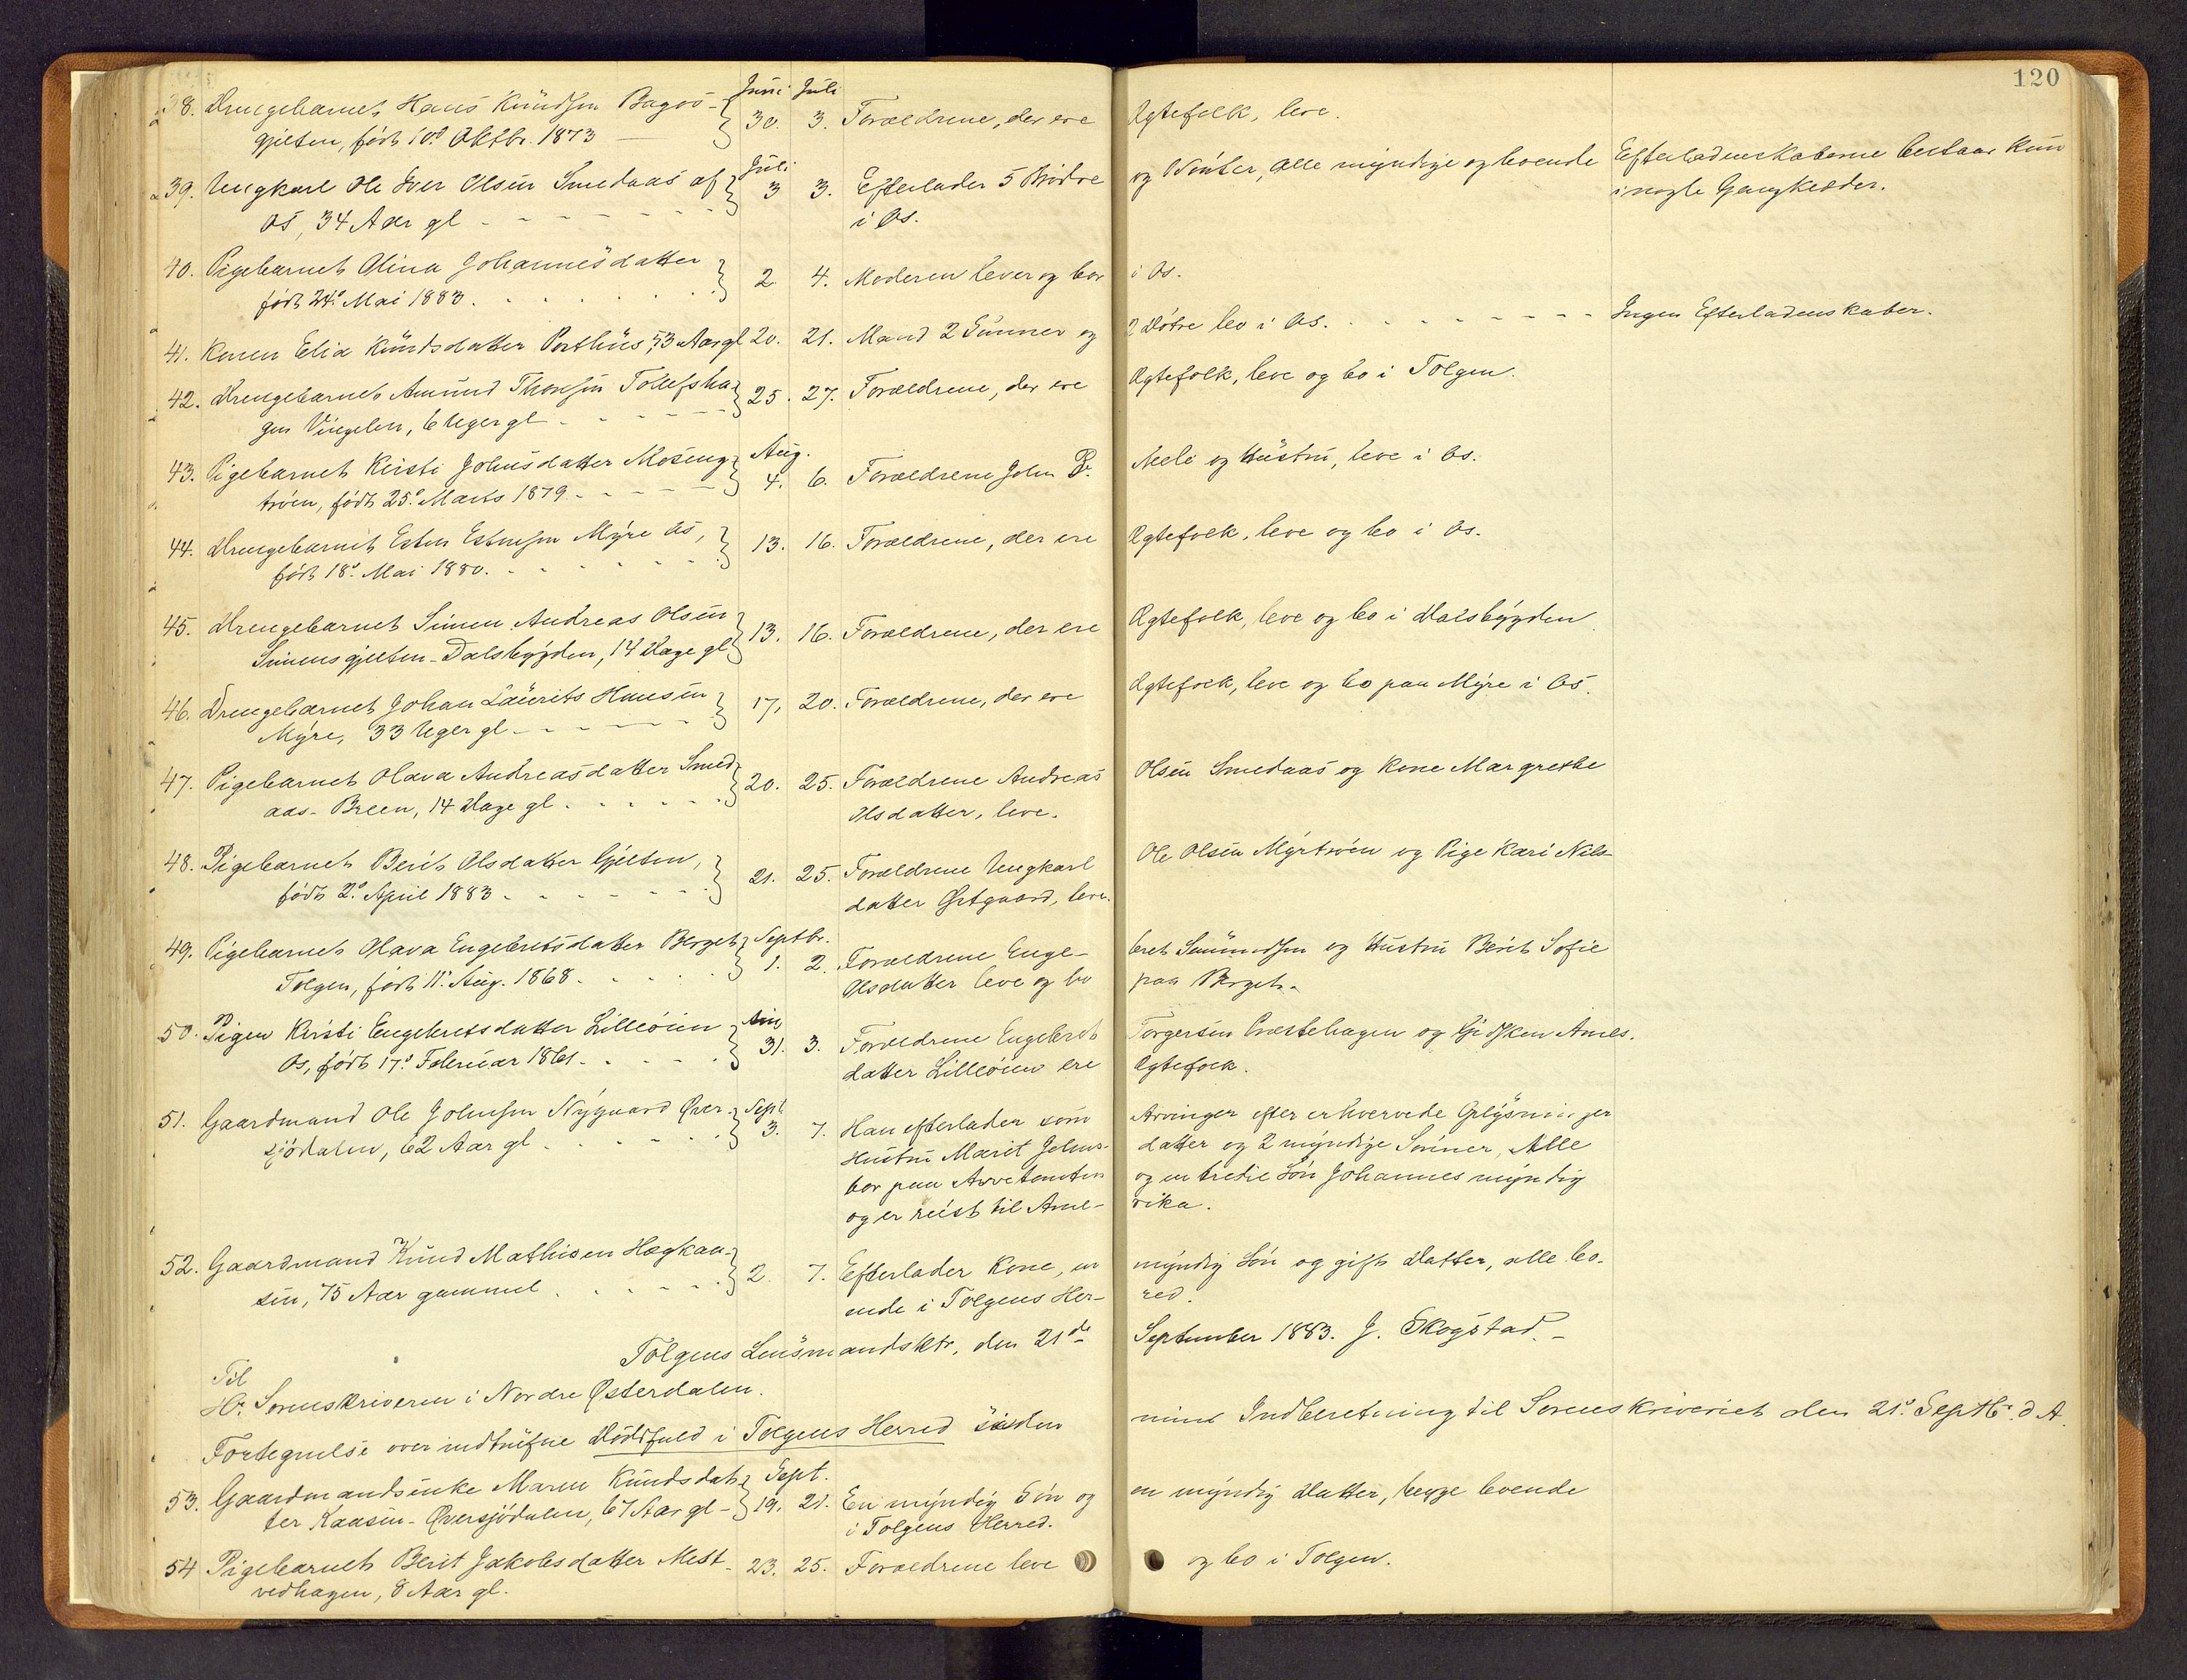 120
Juni Juli
38. Drengebarnet Hans Knudsen Bagos-
gjelten, født 10d Oktbr. 1873 — 30. 3. Forældrene, der ere Ægtefolk, leve.
Juli
39. Ungkarl Ole Iver Olsen Smedaas af 3 3. Efterlader 5 Brødre og Søster, alle myndige og boende Efterladenskaberne bestaar kun
Os, 34 Aar gl - - - i Os. i nogle Gangklæder.
40. Pigebarnet Olina Johannesdatter 2. 4. Moderen lever og bor i Os.
født 24d Mai 1883.
41. Konen Elia Knudsdatter Porthus, 53 Aar gl 20. 21. Mand 2 Sønner og 2 Døtre bo i Os. - - - Ingen Efterladenskaber.
42. Drengebarnet Amund Thoresen Tollefsha- 25. 27. Forældrene, der ere Ægtefolk, leve og bo i Tolgen.
gen Vingelen, 6 Uger gl
Aug.
43. Pigebarnet Kirsti Johnsdatter Moseng- 4. 6. Forældrene John P. Meli og Hustru, leve i Os.
trøen, født 25d Marts 1879
44. Drengebarnet Esten Estensen Myre Os, 13. 16. Forældrene, der ere Ægtefolk, leve og bo i Os.
født 18d Mai 1880.
45. Drengebarnet Simen Andreas Olsen 13. 16. Forældrene, der ere Ægtefolk, leve og bo i Dalsbygden
Simensgjelten-Dalsbygden, 14 Dage gl
46. Drengebarnet Johan Laurits Hansen 17, 20. Forældrene, der ere Ægtefolk, leve og bo paa Myre i Os.
Myre, 33 Uger gl
47. Pigebarnet Olava Andreasdatter Smed- 20. 25. Forældrene Andreas Olsen Smedaas og Kone Margrethe
aas-Breen, 14 Dage gl. Olsdatter, leve.
48. Pigebarnet Berit Olsdatter Gjelten, 21. 25. Forældrene Ungkarl Ole Olsen Myrtrøen og Pige Kari Nils-
født 2d April 1883 datter Østgaard, leve.
Septbr.
49. Pigebarnet Olava Engebretsdatter Berget 1. 2. Forældrene Enge- bret Simundsen og Hustru Berit Sofie
Tolgen, født 11d Aug. 1868. Olsdatter leve og bo paa Berget.
Aug
50. Pigen Kirsti Engebretsdatter Lilleøien 31. 3. Forældrene Engebret Torgersen Præstehagen og Gidsken Arnes.
Os, født 17d Februar 1861. datter Lilleøien ere Ægtefolk.
Sept
51. Gaardmand Ole Johnsen Nygaard Øver- 3. 7. Han efterlader som Arvinger efter erhvervede Oplysninger
sjødalen, 62 Aar gl Hustru Marit Johns- datter og 2 myndige Sønner, Alle
bor paa Arvetomten og en tredie Søn Johannes myndig
og er reist til Ame- rika.
52. Gaardmand Knud Mathisen Hægkau- 2. 7. Efterlader Kone, en myndig Søn og gift Datter, alle bo-
sen, 75 Aar gammel ende i Tolgens Her- red.
Tolgens Lensmandsktr, den 21de September 1883. J. Skogstad.
Til
Hr. Sorenskriveren i Nordre Østerdalen.
Fortegnelse over indtrufne Dødsfald i Tolgens Herred siden mine Indberetning til Sorenskriveriet den 21d Septbr. d A.
Sept.
53. Gaardmandsenke Maren Knudsdat- 19. 21. En myndig Søn og en myndig Datter, begge boende
ter Kaasen-Øversjødalen, 67 Aar gl i Tolgens Herred.
54 Pigebarnet Berit Jakobsdatter Mest- 23. 25. Forældrene leve og bo i Tolgen.
vedhagen, 8 Aar gl.